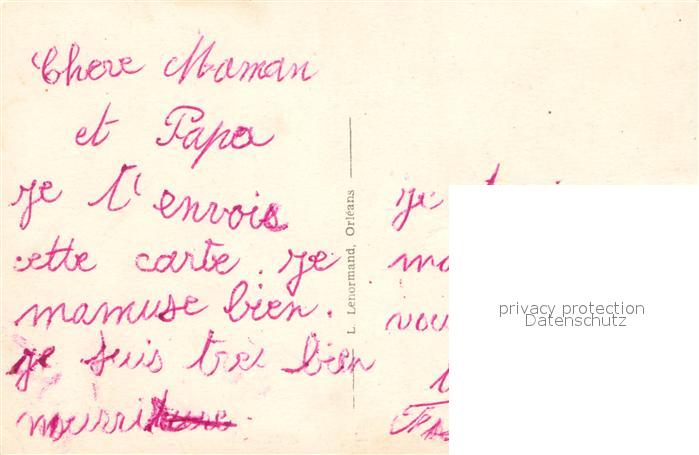 Chere Maman
et Papa
je t'envois
cette carte. je
mamuse bien.
je suis trei bien
nourri
L. Lenormand, Orléans
je
ma
vou
privacy protection
Datenschutz